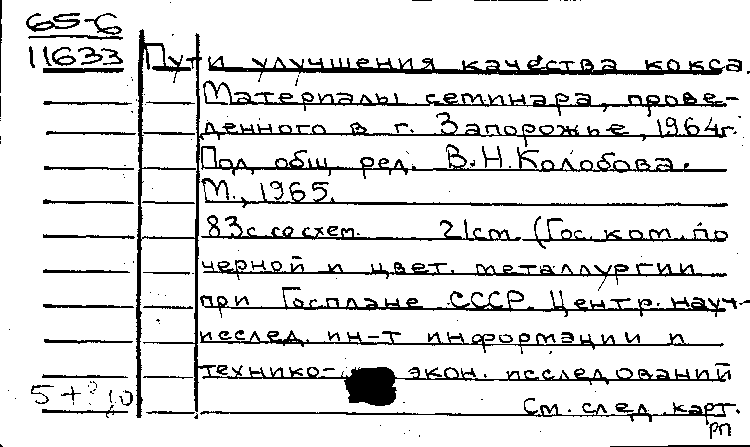 65-6
11633 Пути улучшения качества кокса.
Материалы семинара, прове-
денного в г. Запорожье, 1964г.
Под общ. ред. В.Н.Колобова.
М., 1965.
83с. со схем. 21см. (Гос. ком. по
черной и цвет. металлургии
при Госплане СССР. Центр. науч.-
исслед. ин-т информации и
технико- экон. исследований
См. след. карт.
РП